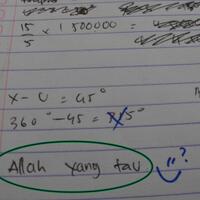 15/5 × 1 500000 =
x - u = 45°
360° - 45 = 315°
Allah yang tau
?